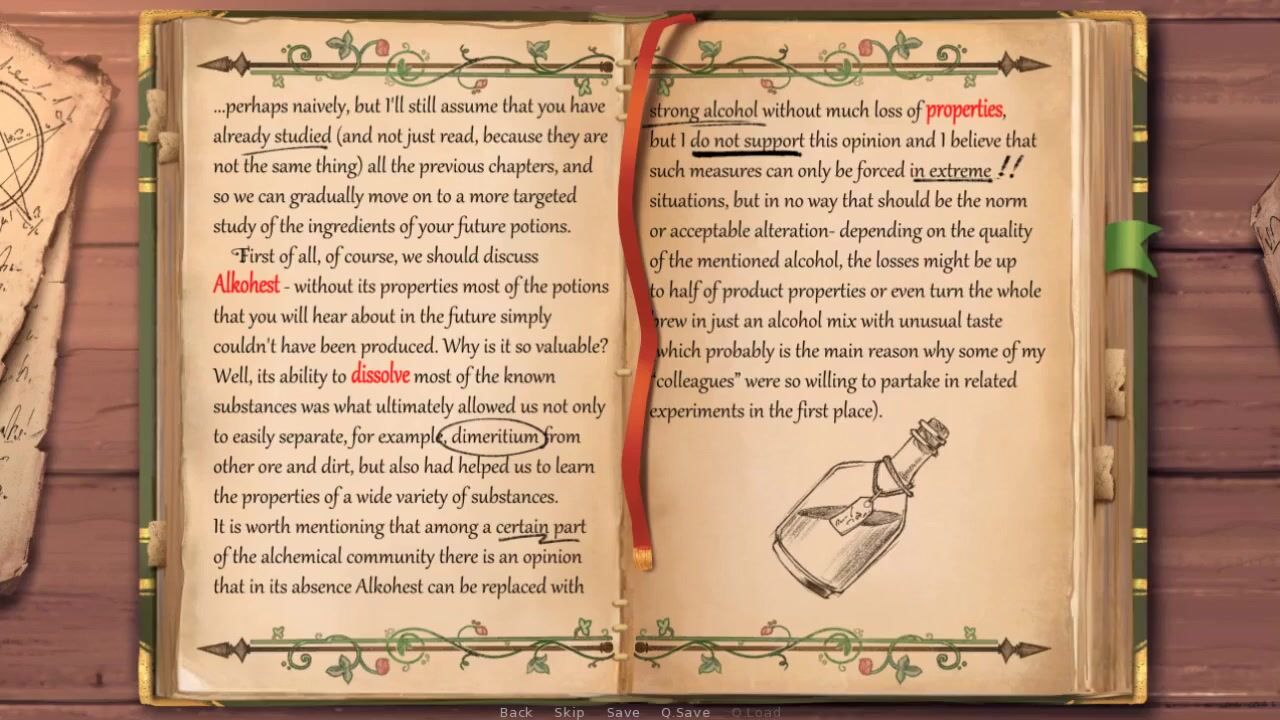 ...perhaps naively, but I'll still assume that you have
already studied (and not just read, because they are
not the same thing) all the previous chapters, and
so we can gradually move on to a more targeted
study of the ingredients of your future potions.
First of all, of course, we should discuss
Alkohest - without its properties most of the potions
that you will hear about in the future simply
couldn't have been produced. Why is it so valuable?
Well, its ability to dissolve most of the known
substances was what ultimately allowed us not only
to easily separate, for example, dimeritium from
other ore and dirt, but also had helped us to learn
the properties of a wide variety of substances.
It is worth mentioning that among a certain part
of the alchemical community there is an opinion
that in its absence Alkohest can be replaced with
strong alcohol without much loss of properties,
but I do not support this opinion and I believe that
such measures can only be forced in extreme !!
situations, but in no way that should be the norm
or acceptable alteration- depending on the quality
of the mentioned alcohol, the losses might be up
to half of product properties or even turn the whole
brew in just an alcohol mix with unusual taste
which probably is the main reason why some of my
"colleagues" were so willing to partake in related
experiments in the first place).
Back Skip Save Q.Save Q.Load